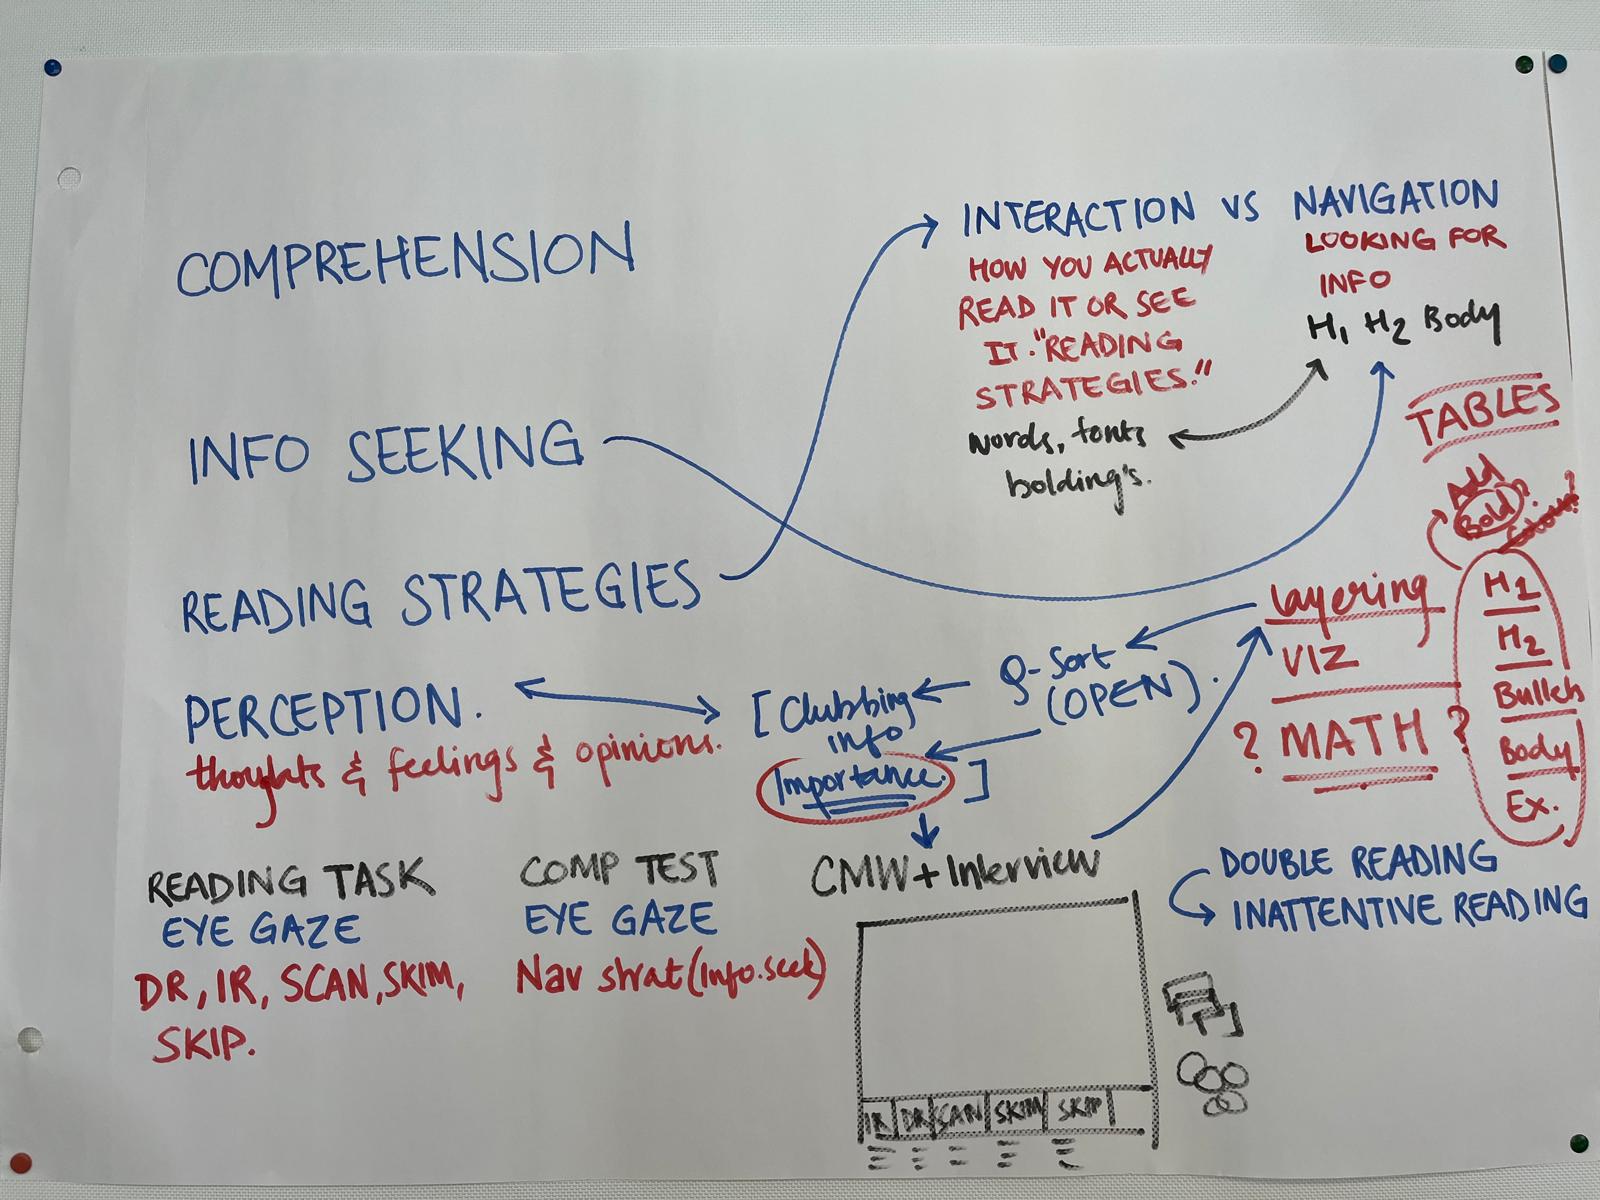 COMPREHENSION
INFO SEEKING
READING STRATEGIES
PERCEPTION.
thoughts & feelings & opinions.
INTERACTION VS NAVIGATION
HOW YOU ACTUALLY
READ IT OR SEE
IT. "READING
STRATEGIES."
words, fonts
bolding's.
LOOKING FOR
INFO
H1 H2 Body
TABLES
Add
Bold?
layering
VIZ
? MATH ?
H1
H2
Bullets
Body
Ex.
Q-Sort
(OPEN).
[Clubbing
info
Importance.]
CMW + Interview
DOUBLE READING
INATTENTIVE READING
READING TASK
EYE GAZE
DR, IR, SCAN, SKIM,
SKIP.
COMP TEST
EYE GAZE
Nav strat (Info.seek)
IR DR SCAN SKIM SKIP